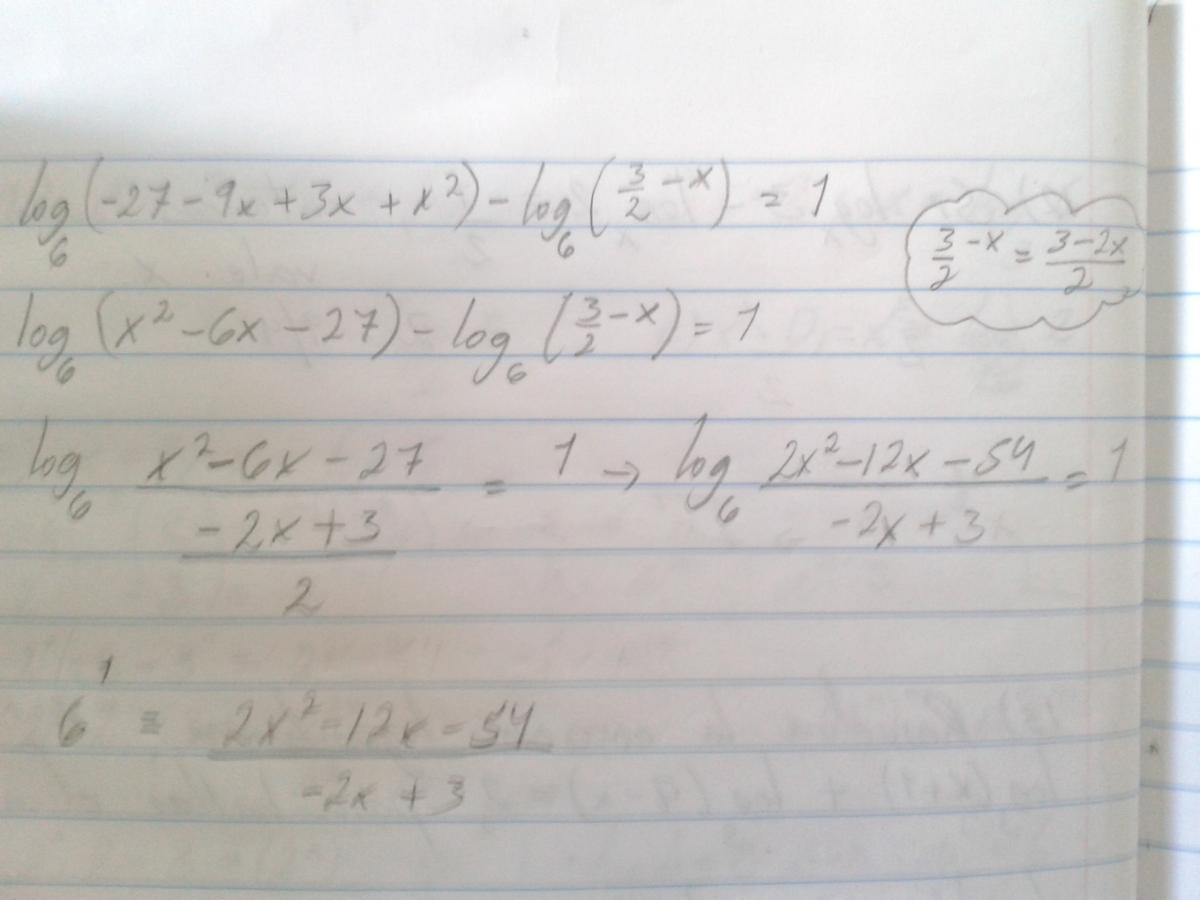 log₆(-27 - 9x + 3x + x²) - log₆(3/2 - x) = 1
3/2 - x = (3-2x)/2
log₆(x² - 6x - 27) - log₆(3/2 - x) = 1
log₆ (x² - 6x - 27)/((-2x + 3)/2) = 1 → log₆ (2x² - 12x - 54)/(-2x + 3) = 1
6¹ = (2x² - 12x - 54)/(-2x + 3)